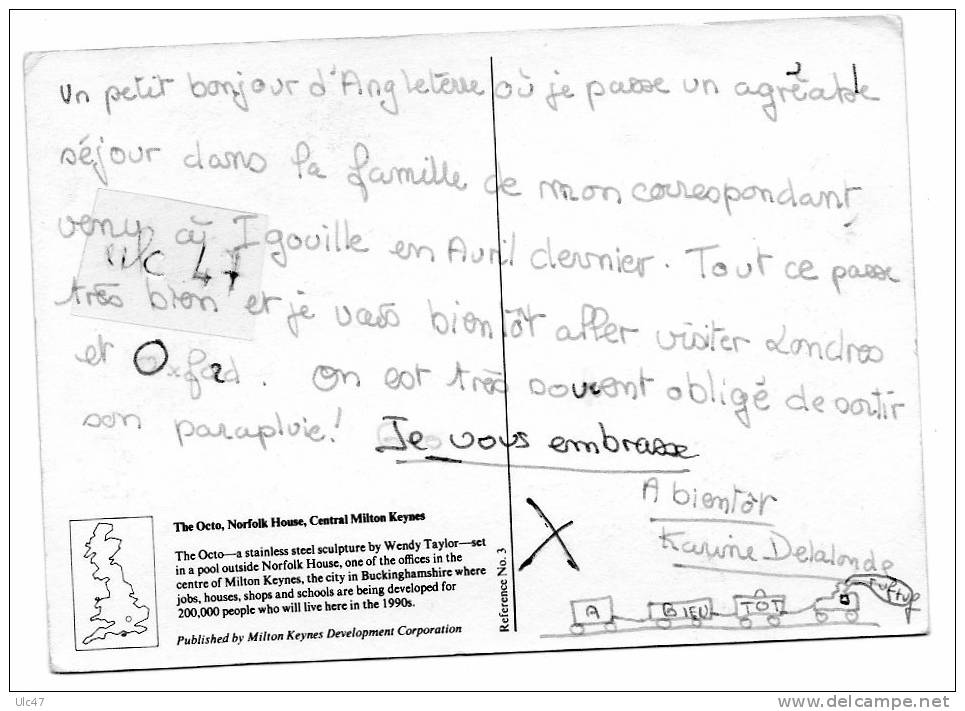 Un petit bonjour d'Angleterre où je passe un agréable
séjour dans la famille de mon correspondant
venu à Igouille en Avril dernier. Tout ce passe
très bien et je vais bientôt aller visiter Londres
et Oxford. On est très souvent obligé de sortir
son parapluie! Je vous embrasse
A bientôt
Karine Delalonde
A BIEN TOT tuftuf
Ulc 47
The Octo, Norfolk House, Central Milton Keynes
The Octo—a stainless steel sculpture by Wendy Taylor—set
in a pool outside Norfolk House, one of the offices in the
centre of Milton Keynes, the city in Buckinghamshire where
jobs, houses, shops and schools are being developed for
200,000 people who will live here in the 1990s.
Published by Milton Keynes Development Corporation
Reference No. 3
Ulc47
www.delcampe.net